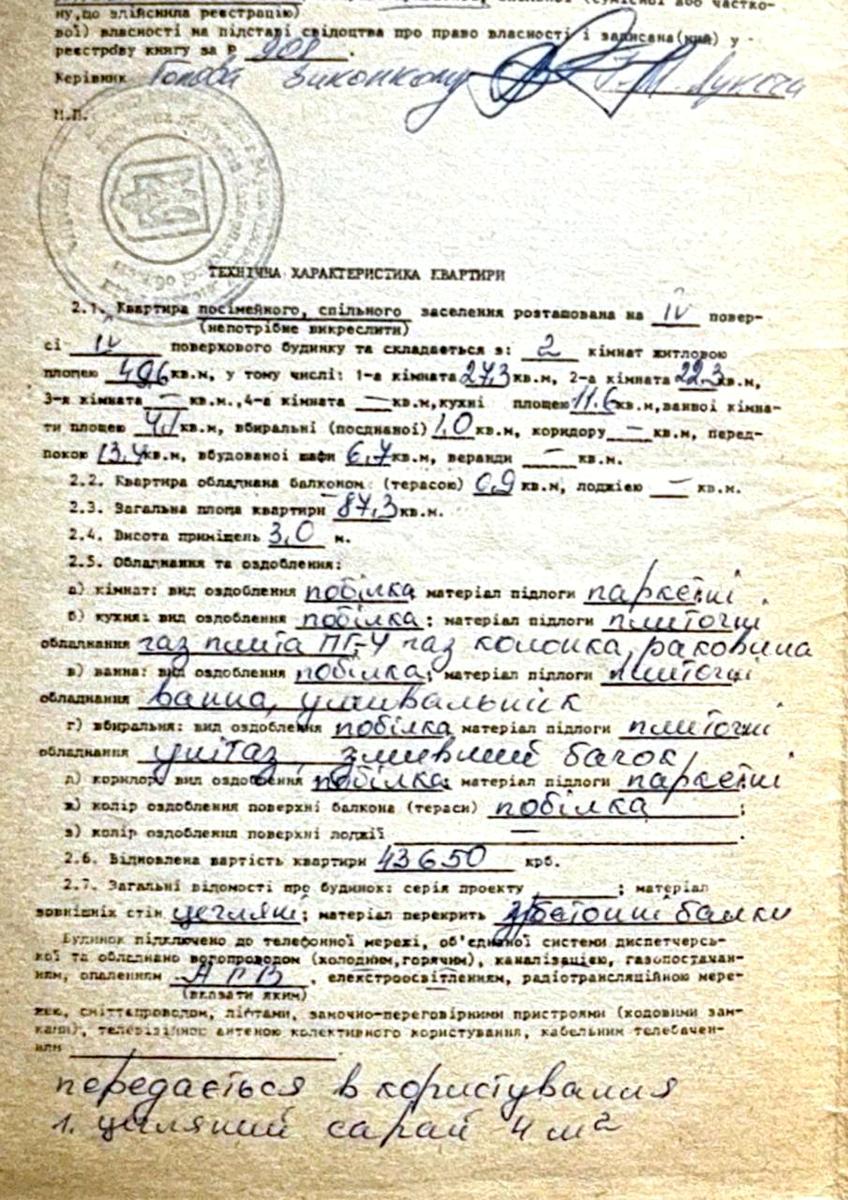 ну,що здійснила реєстрацію)
вої) власності на підставі свідоцтва про право власності і записана(ний) у
реєстрову книгу за Р 908.
Керівник Голова виконкому
М.П.
ТЕХНІЧНА ХАРАКТЕРИСТИКА КВАРТИРИ
2.1. Квартира посімейного, спільного заселення розташована на IV повер-
(непотрібне викреслити)
сі IV поверхового будинку та складається з: 2 кімнат житловою
площею 49,6 кв.м, у тому числі: 1-а кімната 27,3 кв.м, 2-а кімната 22,3 кв.м,
3-я кімната — кв.м.,4-а кімната — кв.м,кухні площею 11.6 кв.м,ванної кімна-
ти площею 4,1 кв.м, вбиральні (поєднаної) 1,0 кв.м, коридору — кв.м, перед-
покою 13,4 кв.м, вбудованої шафи 6,7 кв.м, веранди — кв.м.
2.2. Квартира обладнана балконом (терасою) 0,9 кв.м, лоджією — кв.м.
2.3. Загальна площа квартири 87,3 кв.м.
2.4. Висота приміщень 3,0 м.
2.5. Обладнання та оздоблення:
а) кімнат: вид оздоблення побілка матеріал підлоги паркетні.
б) кухня: вид оздоблення побілка; матеріал підлоги плиточні
обладнання газ плита ПГ-4 газ колонка, раковина
в) ванна: вид оздоблення побілка; матеріал підлоги плиточні
обладнання ванна, умивальнік
г) вбиральня: вид оздоблення побілка матеріал підлоги плиточні
обладнання унітаз, зливний бачок
д) коридор: вид оздоблення побілка; матеріал підлоги паркетні
ж) колір оздоблення поверхні балкона (тераси) побілка;
з) колір оздоблення поверхні лоджії —.
2.6. Відновлена вартість квартири 43650 крб.
2.7. Загальні відомості про будинок: серія проекту ; матеріал
зовнішніх стін цегляні; матеріал перекрить з/бетонні балки
Будинок підключено до телефонної мережі, об'єднаної системи диспетчерсь-
кої та обладнано водопроводом (холодним,горячим), каналізацією, газопостачан-
ням, опаленням АГВ, електроосвітленням, радіотрансляційною мере-
(вказати яким)
жею, сміттєпроводом, ліфтами, замочно-переговірними пристроями (кодовими зам-
ками), телевізійною антеною колективного користування, кабельним телебачен-
ням
передається в користування
1. цегляний сарай 4 м²